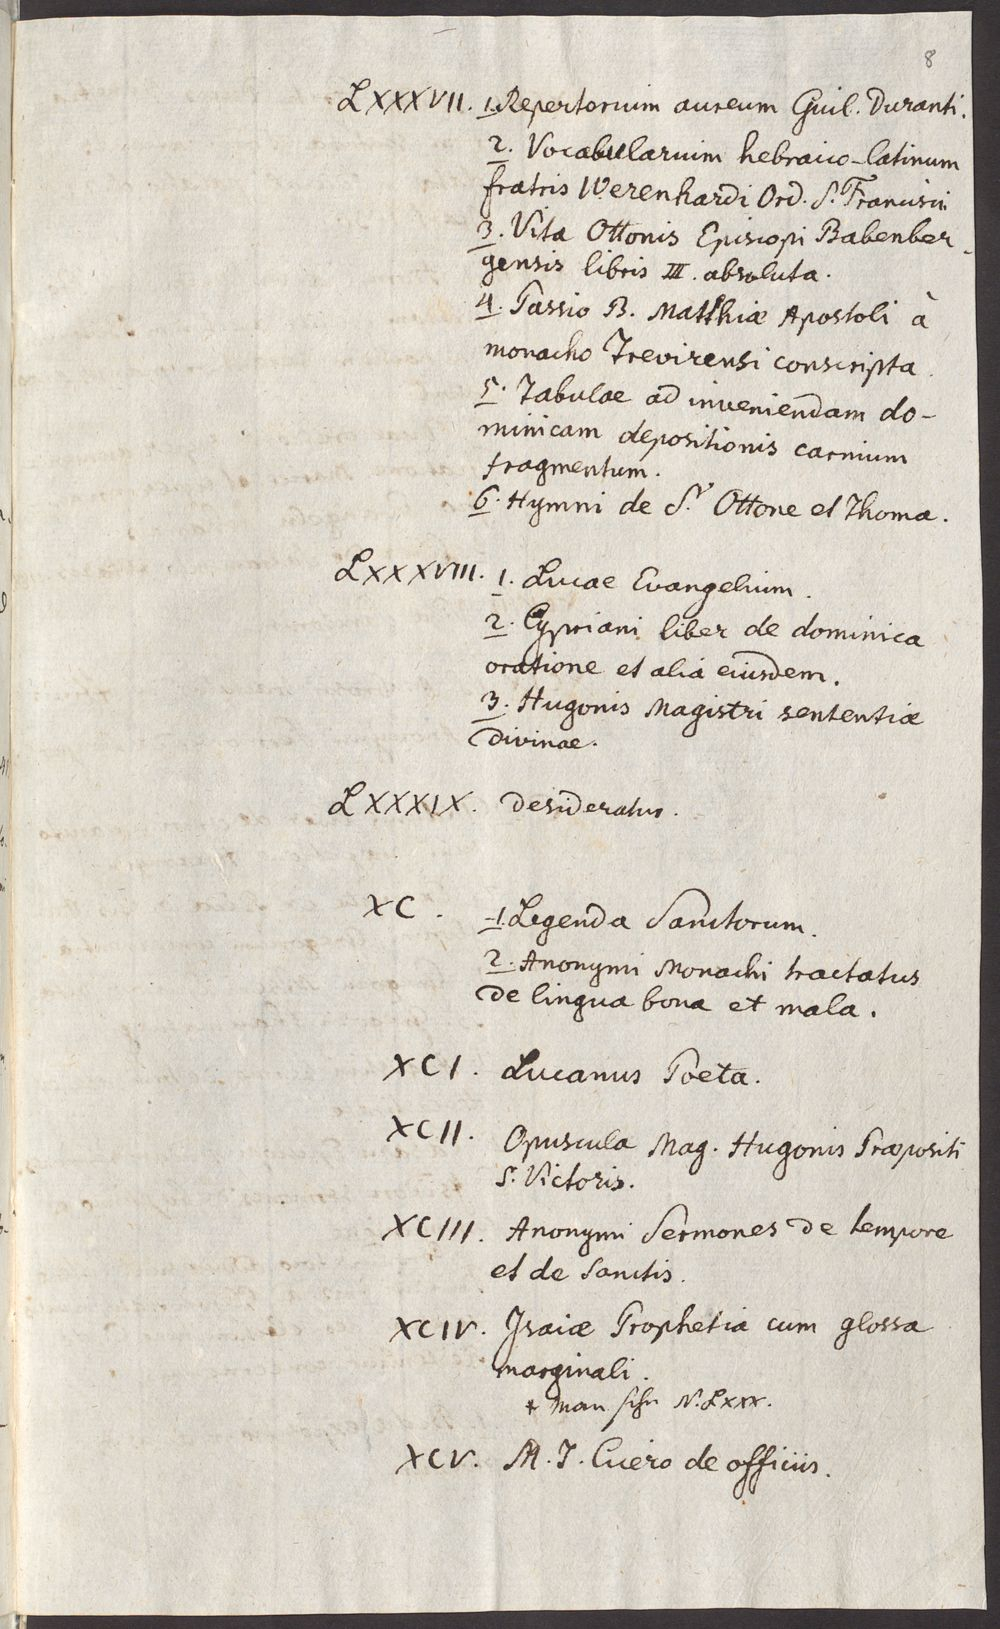 8
LXXXVII. 1. Repertorium aureum Guil. Duranti.
2. Vocabularium hebraico-latinum
fratris Werenhardi Ord. S. Francisci
3. Vita Ottonis Episcopi Babenber-
gensis libris III. absoluta.
4. Passio B. Matthiæ Apostoli à
monacho Trevirensi conscripta.
5. Tabulae ad inveniendam do-
minicam depositionis carnium
fragmentum.
6. Hymni de S. Ottone et Thoma.
LXXXVIII. 1. Lucae Evangelium.
2. Cypriani liber de dominica
oratione et alia eiusdem.
3. Hugonis Magistri sententiæ
divinae.
LXXXIX. desideratur.
XC. 1. Legenda Sanctorum.
2. Anonymi Monachi tractatus
de lingua bona et mala.
XCI. Lucanus Poeta.
XCII. Opuscula Mag. Hugonis Præpositi
S. Victoris.
XCIII. Anonymi Sermones de tempore
et de Sanctis.
XCIV. Isaiæ Prophetia cum glossa
marginali.
+ man sehe N. LXXX.
XCV. M. T. Cicero de officiis.